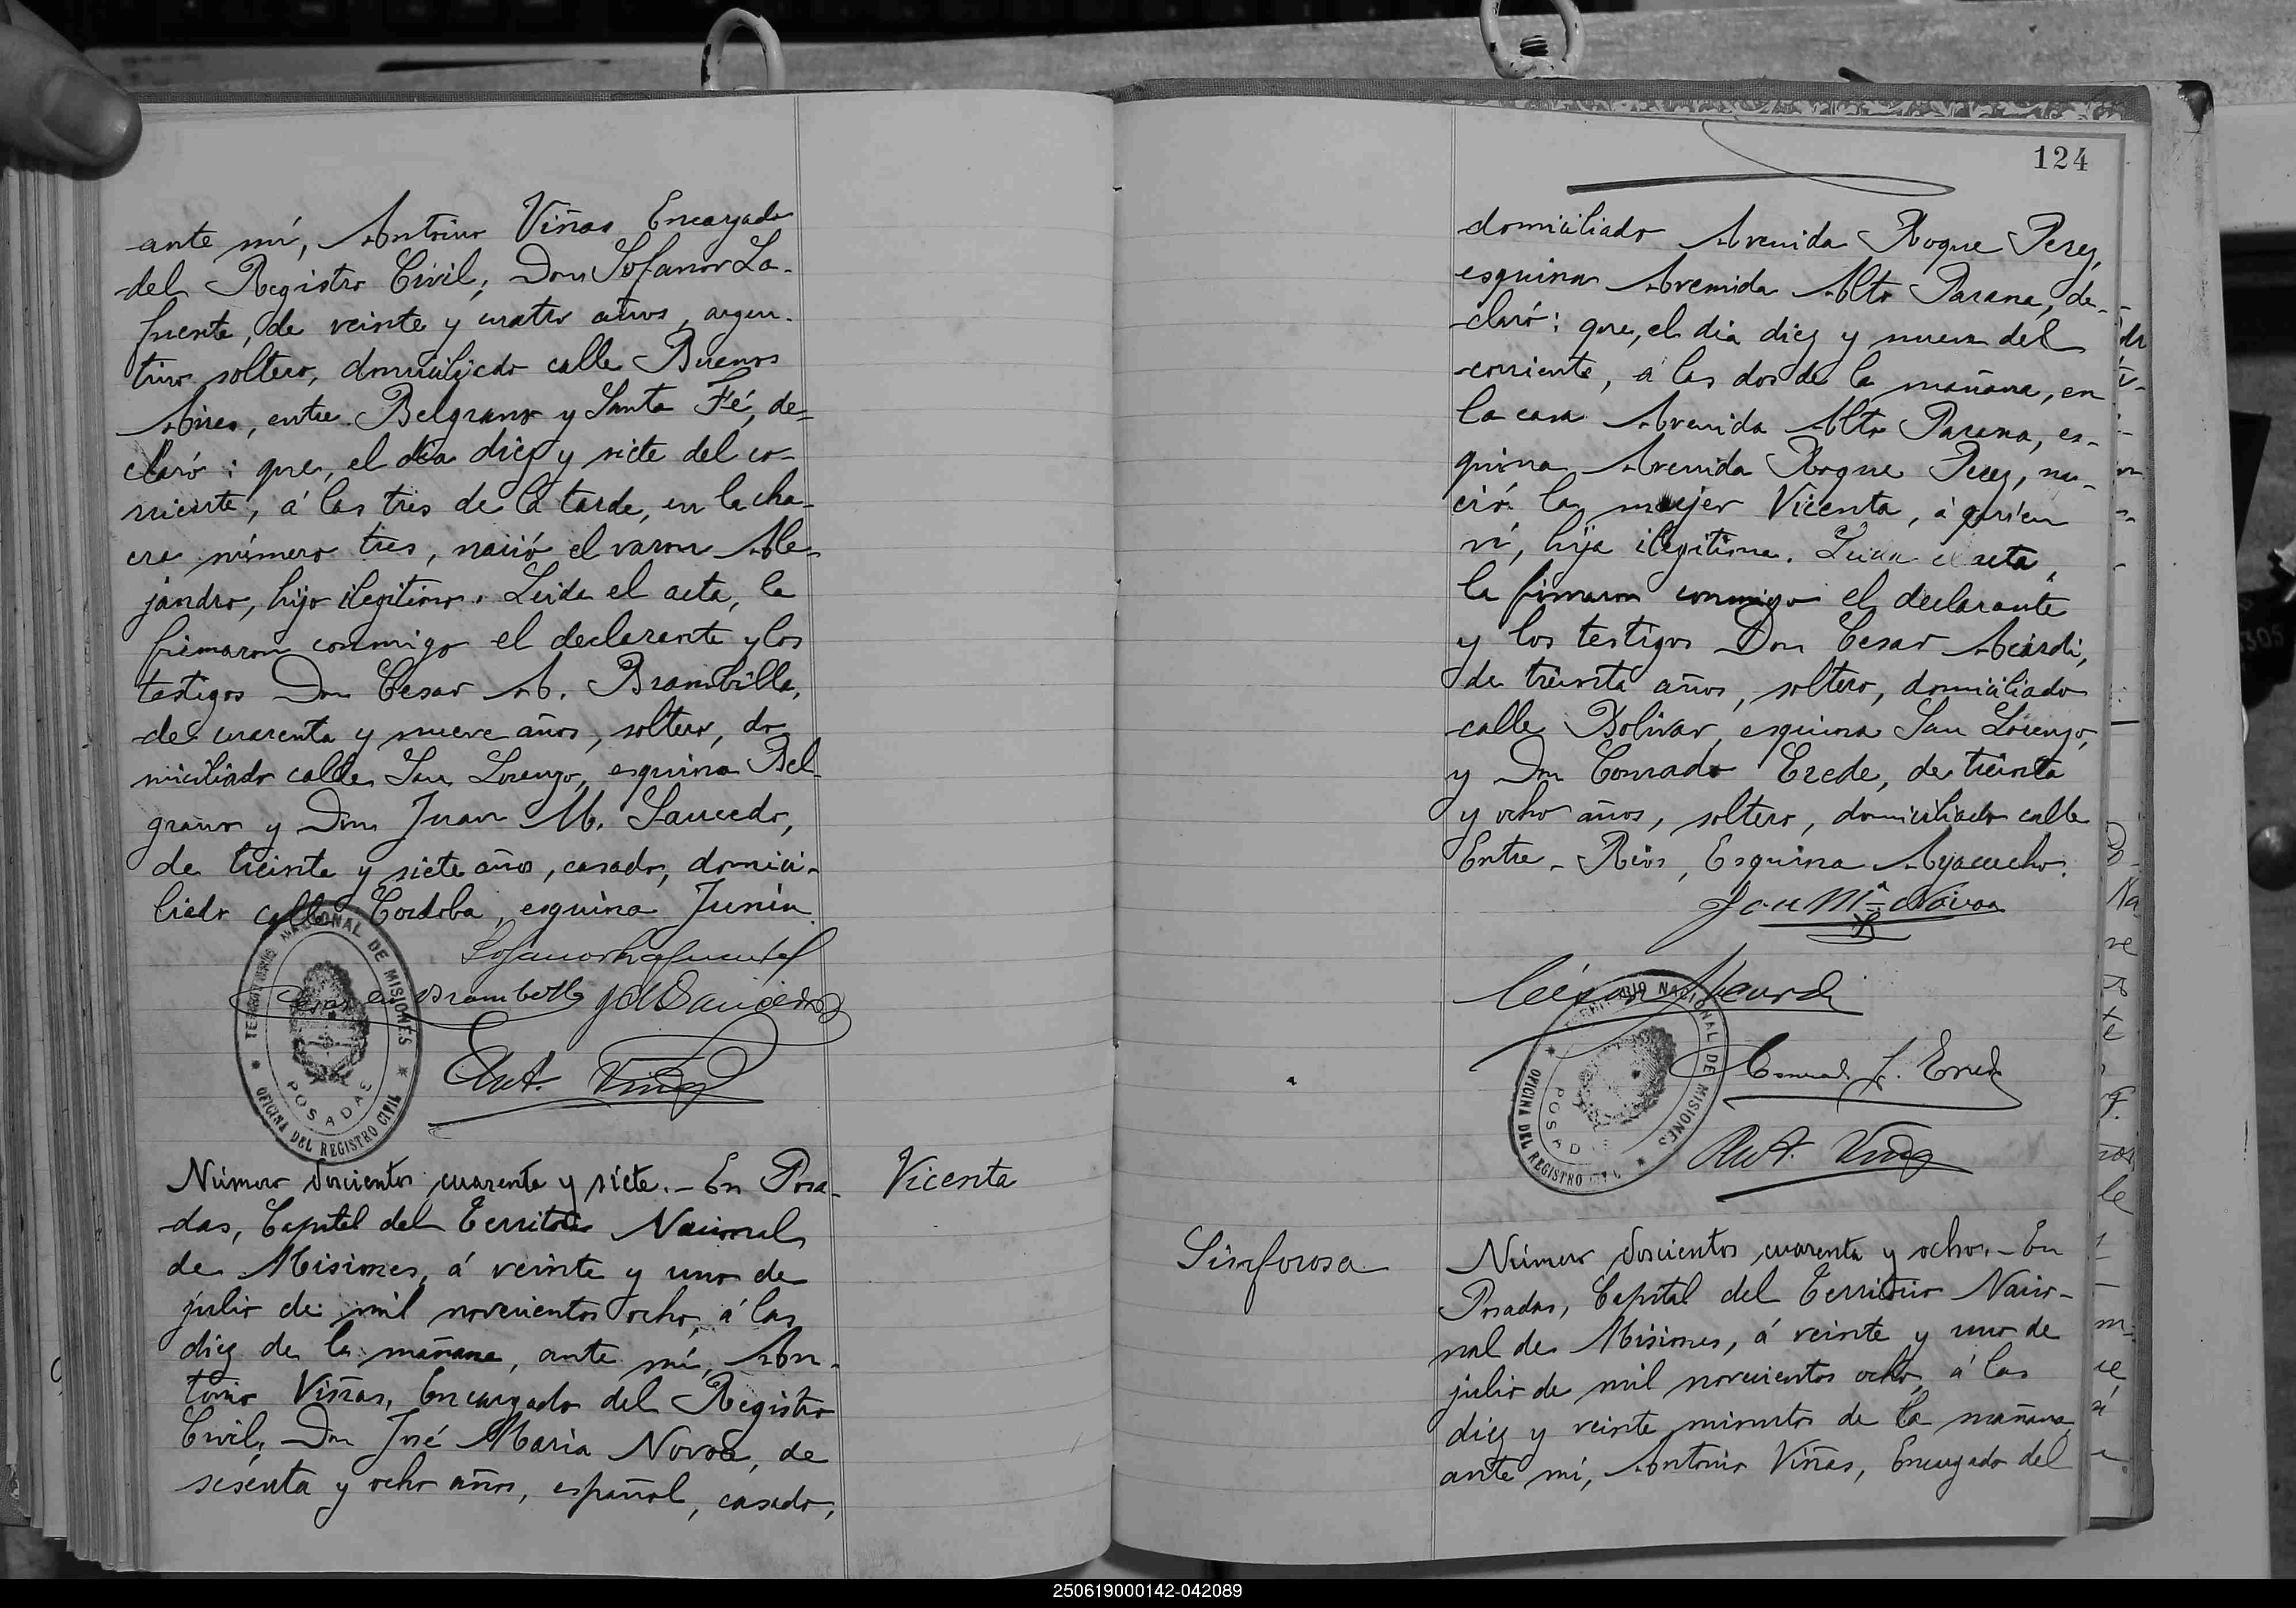 ante mí, Antonio Viñas Encargado
del Registro Civil; Don Sofanor La-
fuente, de veinte y cuatro años, argen-
tino soltero, domiciliado calle Buenos
Aires, entre Belgrano y Santa Fé, de-
claró: que, el dia diez y siete del co-
rriente, á las tres de la tarde, en la cha-
cra número tres, nació el varon Ale-
jandro, hijo ilegitimo. Leida el acta, la
firmaron conmigo el declarante y los
testigos Don Cesar A. Brambilla,
de cuarenta y nueve años, soltero, do
miciliado calle San Lorenzo, esquina Bel-
grano y Don Juan M. Saucedo,
de treinta y siete años, casado, domici-
liado calle Cordoba, esquina Junín
Sofanor Lafuente
Brambilla J M Saucedo
Ant. Viñas
TERRITORIO NACIONAL DE MISIONES
POSADAS
OFICINA DEL REGISTRO CIVIL
Número doscientos cuarenta y siete.- En Posa-
das, Capital del Territorio Nacional
de Misiones, á veinte y uno de
julio de mil novecientos ocho, á las
diez de la mañana, ante mí, An-
tonio Viñas, Encargado del Registro
Civil, Don José Maria Novoa, de
sesenta y ocho años, español, casado,
Vicenta
124
domiciliado Avenida Roque Perez,
esquina Avenida Alto Parana, de-
claró: que, el dia diez y nueve del
corriente, a las dos de la mañana, en
la casa Avenida Alto Parana, es-
quina Avenida Roque Perez, na-
ció la mujer Vicenta, á quien
ví, hija ilegitima. Leida el acta,
la firmaron conmigo el declarante
y los testigos Don Cesar Acardi,
de treinta años, soltero, domiciliado
calle Bolivar, esquina San Lorenzo,
y Don Conrado Erede, de treinta
y ocho años, soltero, domiciliado calle
Entre-Rios, Esquina Ayacucho.
José Mª Novoa
César Acardi
Conrado J. Erede
Ant. Viñas
TERRITORIO NACIONAL DE MISIONES
POSADAS
OFICINA DEL REGISTRO CIVIL
Sinforosa
Número doscientos cuarenta y ocho.- En
Posadas, Capital del Territorio Nacio-
nal de Misiones, á veinte y uno de
julio de mil novecientos ocho, á las
diez y veinte minutos de la mañana,
ante mí, Antonio Viñas, Encargado del
250619000142-042089